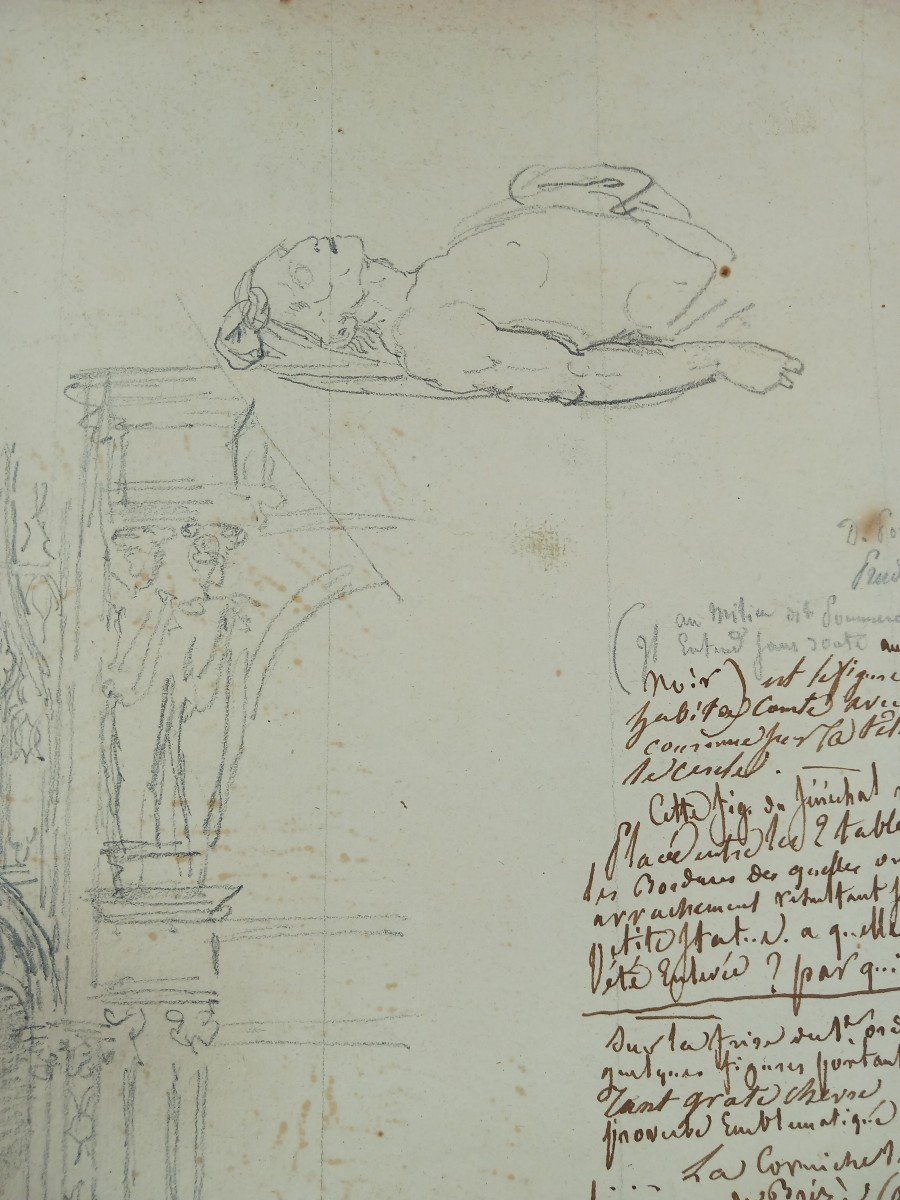 D. Po
Prud
(Il au Milieu dit Pommera
Entend sans doute au
Noir) est le figure
habit de Comte avec
couronne sur la tête
le cercle.
Cette fig. du Sénéchal
Placé entre les 2 table
les Bordures des quelles on
arrachement résultant
Petite Stat..e. a quelle
été Enlevée ? par q..i
Sur la frise du 1er ord
quelques figures portant
Tant grate chevre
proverbe Emblematique
La Corniche
de Brézé